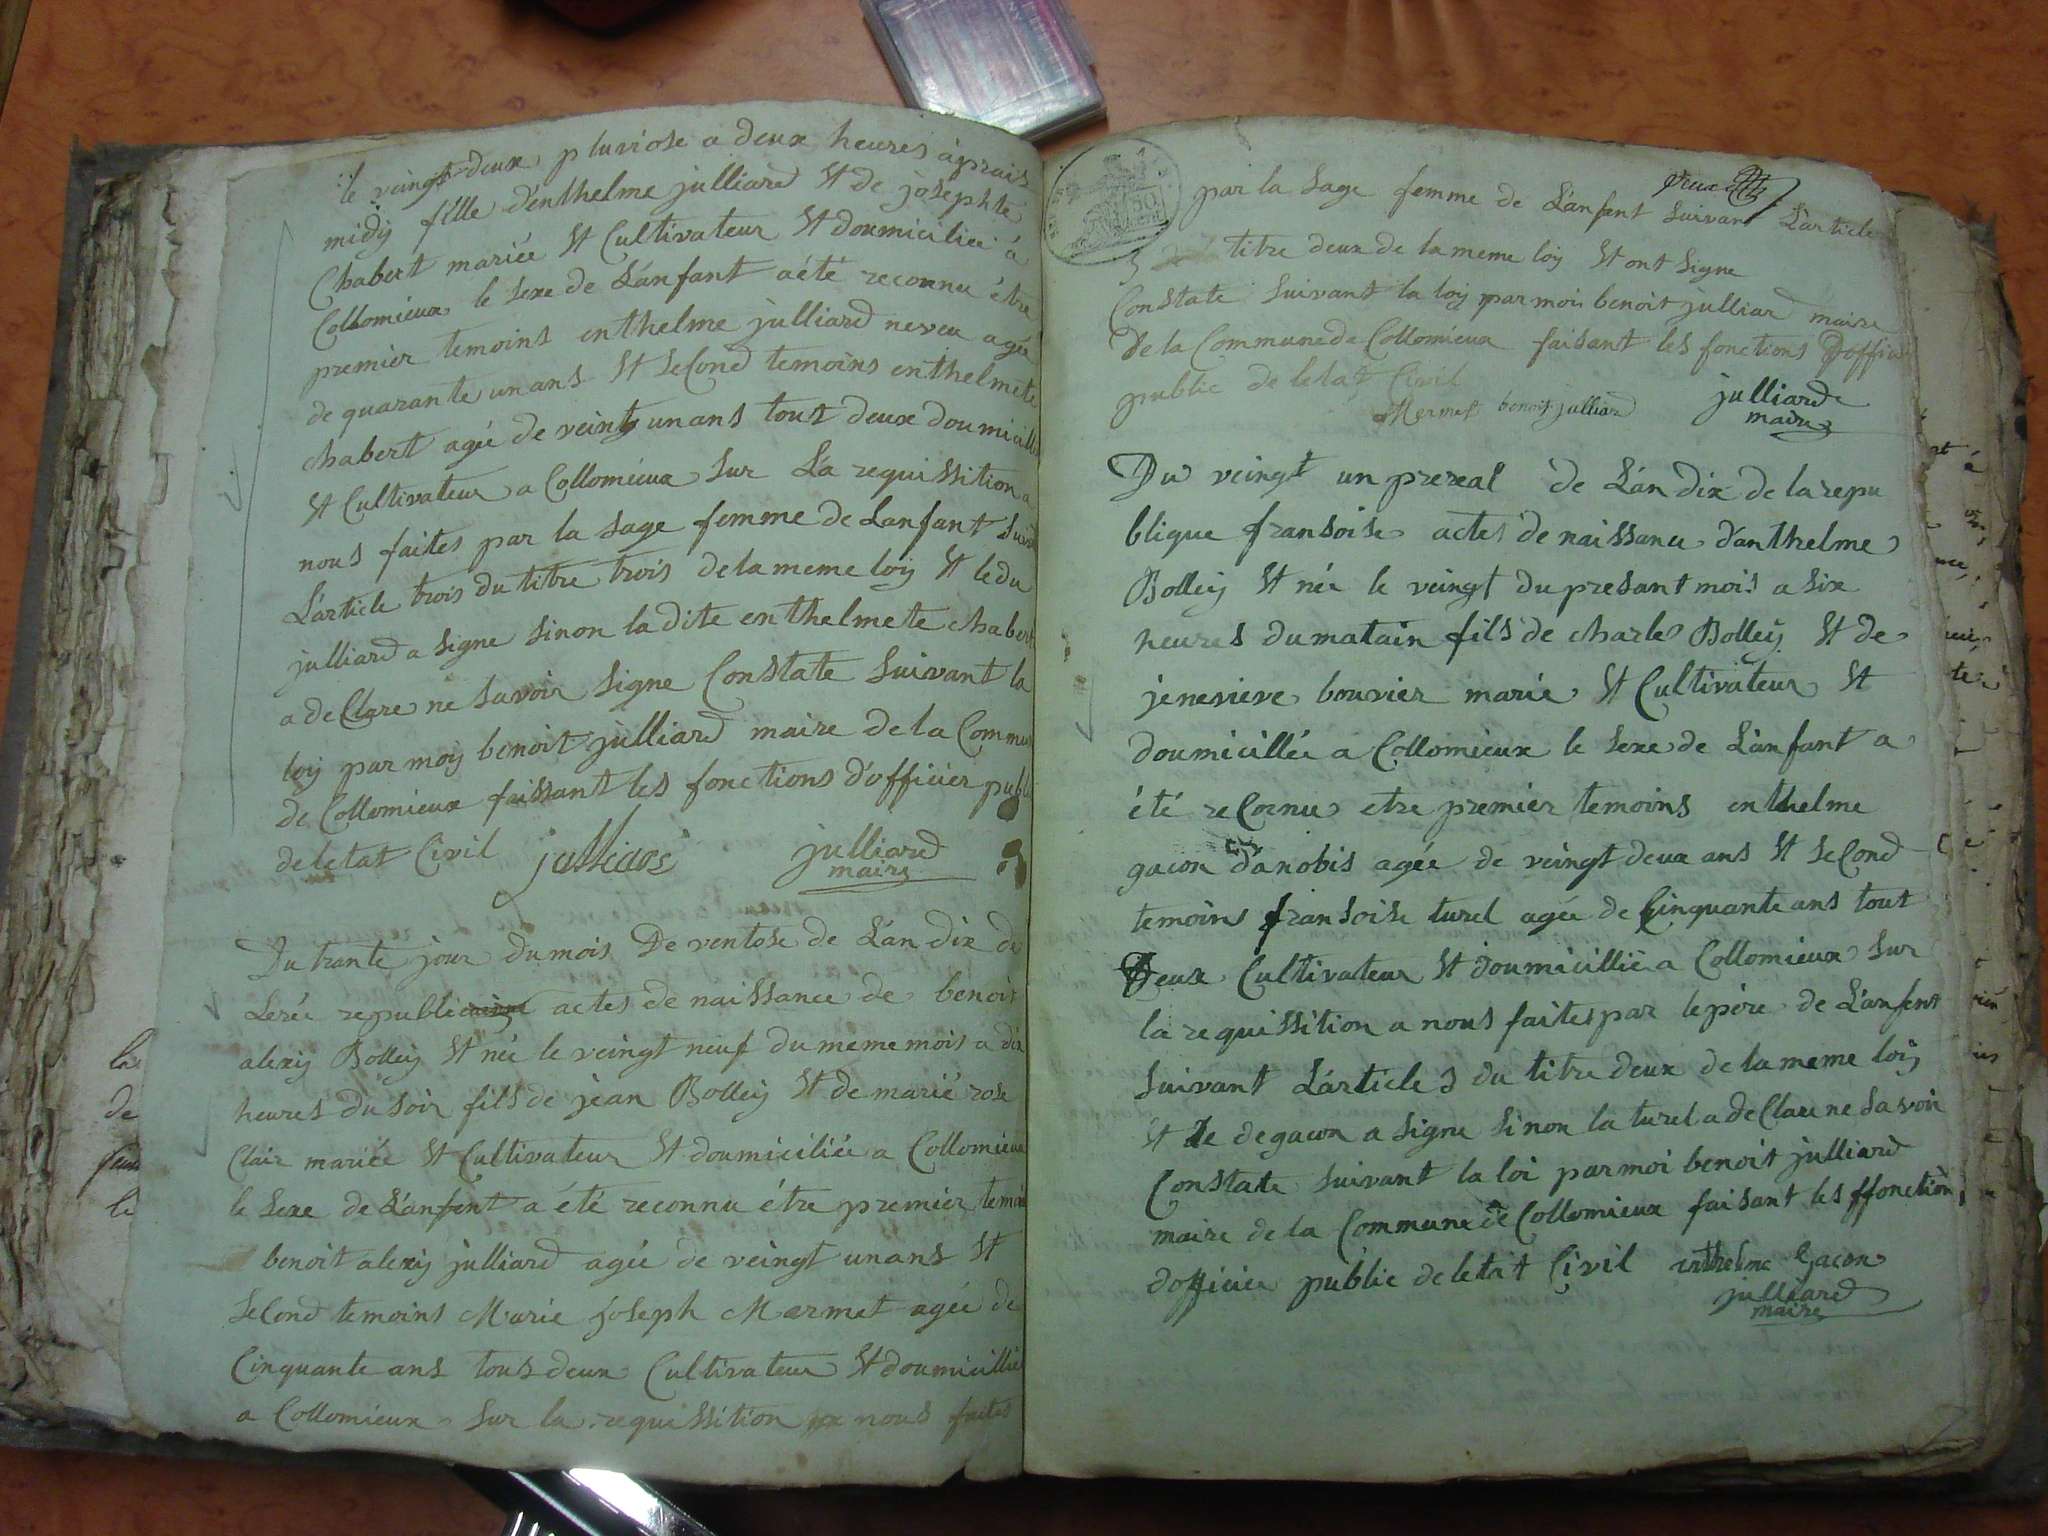 le veingt deux pluviose a deux heures aprais
midy fille d'enthelme julliard et de josephte
Chabert mariée et Cultivateur et doumiciliee à
Collomieux le sexe de L'anfant aété reconnu être
premier temoins enthelme julliard neveu agée
de quarante un ans et second temoins enthelmete
chabert agée de veingt un ans tout deux doumicillie
et Cultivateur a Collomieux sur La requissition a
nous faites par la sage femme de Lanfant suivant
L'article trois du titre trois de la meme loy et ledu
julliard a signe sinon la dite enthelmete chabert
a declare ne savoir signe Constate suivant la
loy par moy benoit julliard maire de la Commune
de Collomieux faissant les fonctions d'officier publi
de letat Civil julliard julliard
maire
Du trante jour du mois De ventose de L'an dix de
Lerée republicaine actes de naissance de benoit
alexy Bolley et née le veingt neuf du meme mois a dix
heures du soir fils de jean Bolley et de marie rose
Clair mariée et Cultivateur et doumiciliée a Collomieux
le sexe de L'anfent a été reconnu être premier temoin
benoit alexy julliard agée de veingt un ans et
second temoins Marie joseph Marmet agée de
Cinquante ans tous deux Cultivateur et doumicillié
a Collomieux sur la requissition nous faites
par la sage femme de L'anfent suivant L'article
3 titre deux de la meme loy et ont signe
Constate suivant la loy par moi benoit julliard maire
De la Commune de Collomieux faisant les fonctions D'officier
public de letat Civil
Mermet benoit julliard julliard
maire
Du veingt un prereal de L'an dix de la repu
blique fransoise actes de naissance d'anthelme
Bolley et née le veingt du presant mois a six
heures du matain fils de charle Bolley et de
jenevieve bouvier marié et Cultivateur et
doumicillée a Collomieux le sexe de L'anfant a
été recornu etre premier temoins enthelme
gacon danobis agée de veingt deux ans et second
temoins fransoise turel agée de Cinquante ans tout
Deux Cultivateur et doumicillié a Collomieux sur
la requissition a nous faites par le père de L'anfent
suivant L'article 3 du titre deux de la meme loy
et le de gacon a signe sinon la turel a declare ne savoir
Constate suivant la loi par moi benoit julliard
maire de la Commune de Collomieux faisant les ffonction
dofficier public de letat Civil enthelme Gacon
julliard
maire